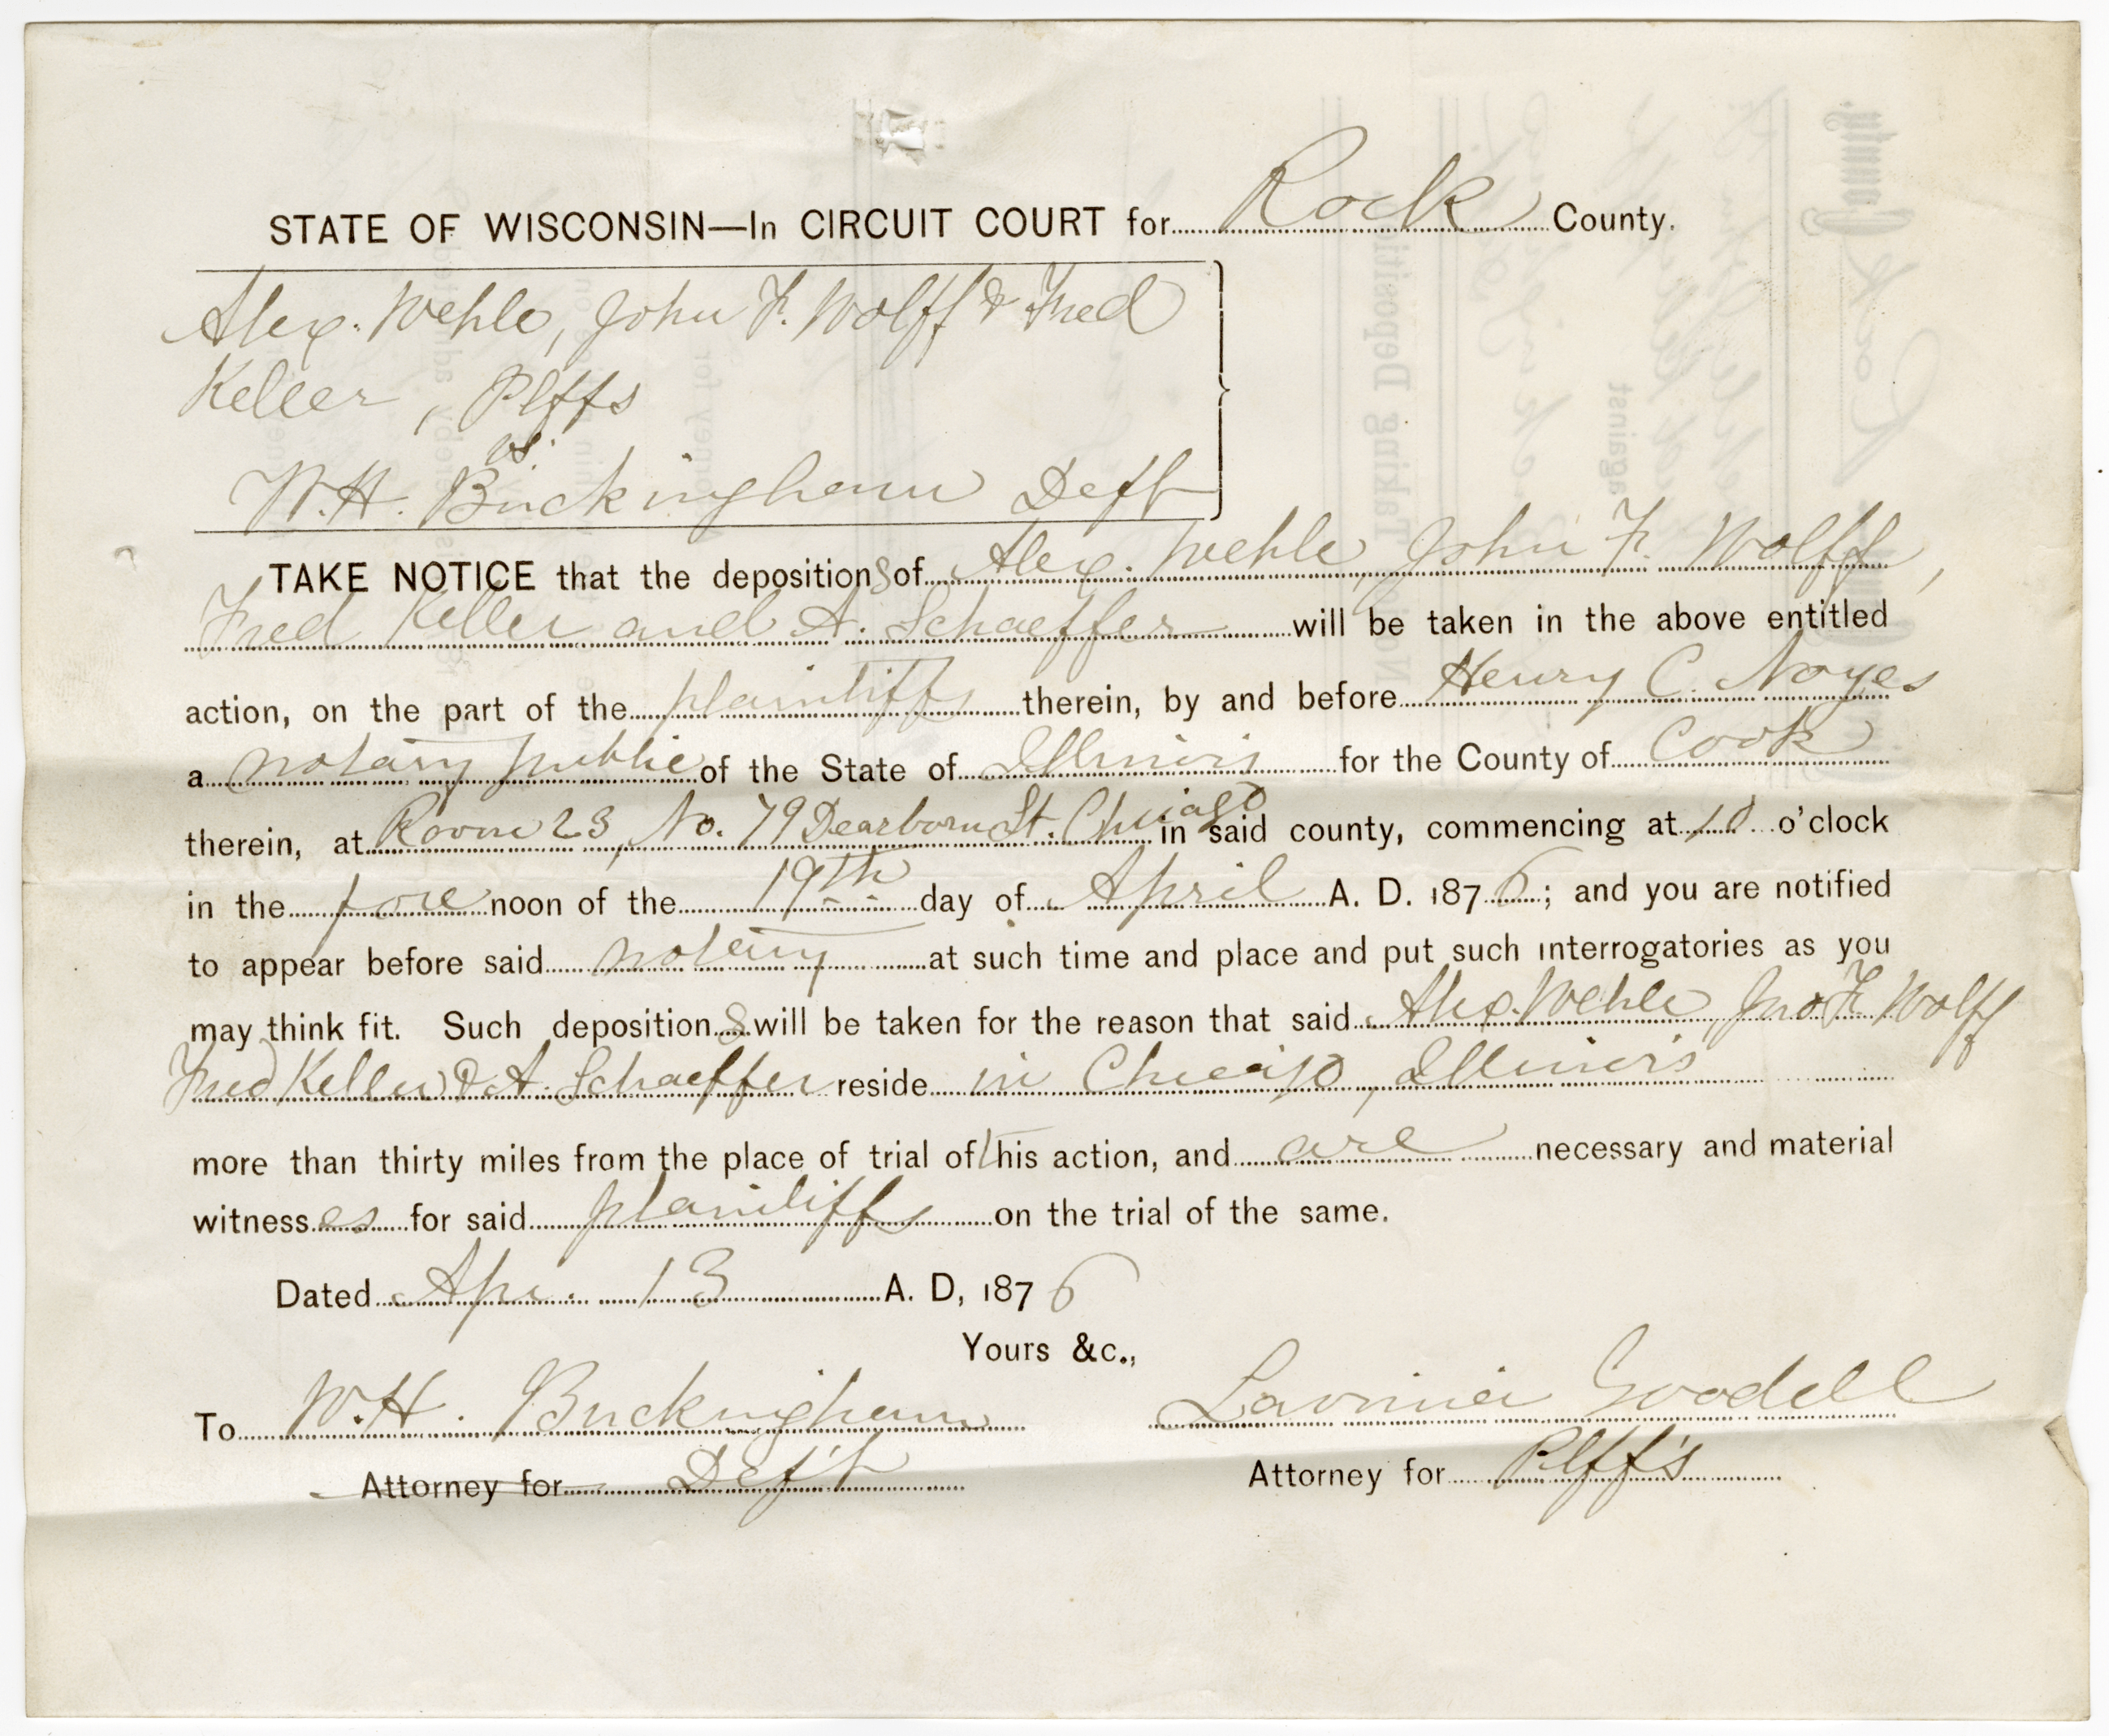 STATE OF WISCONSIN—In CIRCUIT COURT for Rock County.
Alex. Wehle, John F. Wolff & Fred
Keller, Plffs
vs.
W.H. Buckingham Deft
TAKE NOTICE that the depositions of Alex. Wehle, John F. Wolff,
Fred Keller and A. Schaeffer will be taken in the above entitled
action, on the part of the plaintiffs therein, by and before Henry C. Noyes
a notary public of the State of Illinois for the County of Cook
therein, at Room 23, No. 79 Dearborn St. Chicago in said county, commencing at 10 o'clock
in the fore noon of the 19th day of April A. D. 1876; and you are notified
to appear before said notary at such time and place and put such interrogatories as you
may think fit. Such depositions will be taken for the reason that said Alex. Wehle, Jno F. Wolff
Fred Keller & A. Schaeffer reside in Chicago, Illinois
more than thirty miles from the place of trial of this action, and are necessary and material
witnesses for said plaintiffs on the trial of the same.
Dated Apr. 13 A. D, 1876
Yours &c.,
To W.H. Buckingham Lavinia Goodell
Attorney for Def't Attorney for Plff's